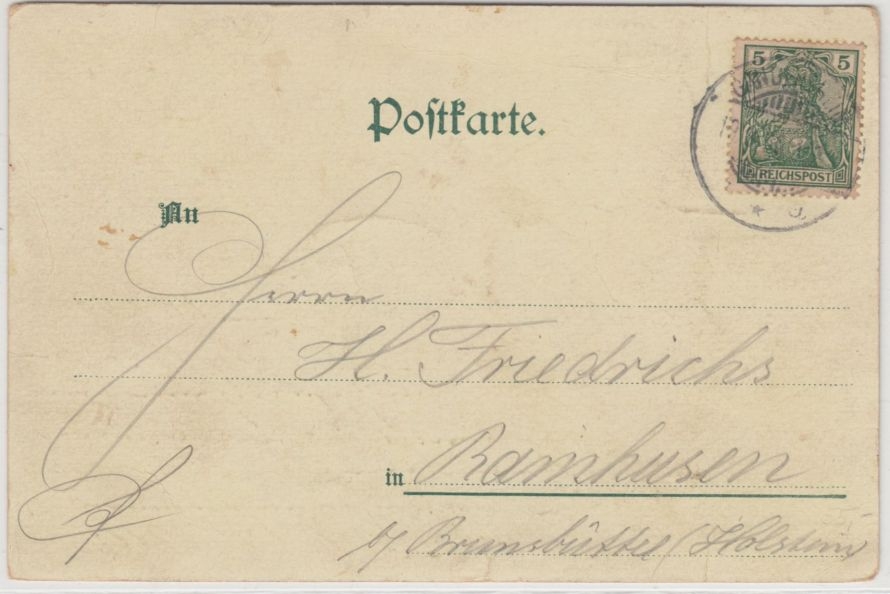 Postkarte.
5 5
REICHSPOST
An
Herrn
H. Friedrichs
in Ramhusen
b/ Brunsbüttel (Holstein